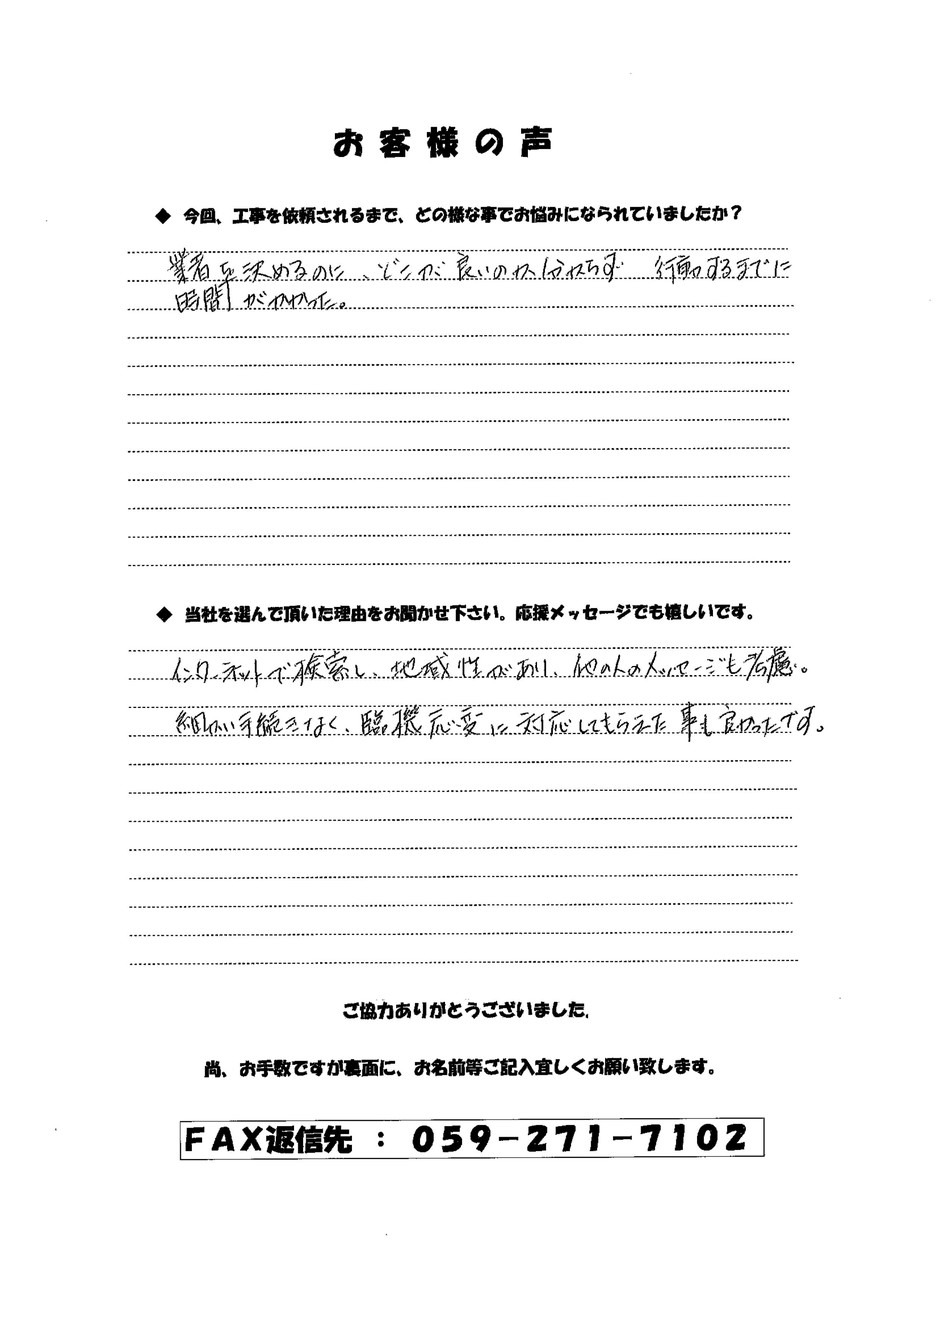 お客様の声
◆ 今回、工事を依頼されるまで、どの様な事でお悩みになられていましたか？
業者を決めるのに、どこが良いのか分からず 行動するまでに
時間がかかった。
◆ 当社を選んで頂いた理由をお聞かせ下さい。応援メッセージでも嬉しいです。
インターネットで検索し、地域性があり、他の人のメッセージも考慮。
細かい手続きなく、臨機応変に対応してもらえた事も良かったです。
ご協力ありがとうございました。
尚、お手数ですが裏面に、お名前等ご記入宜しくお願い致します。
FAX返信先 ： 059-271-7102